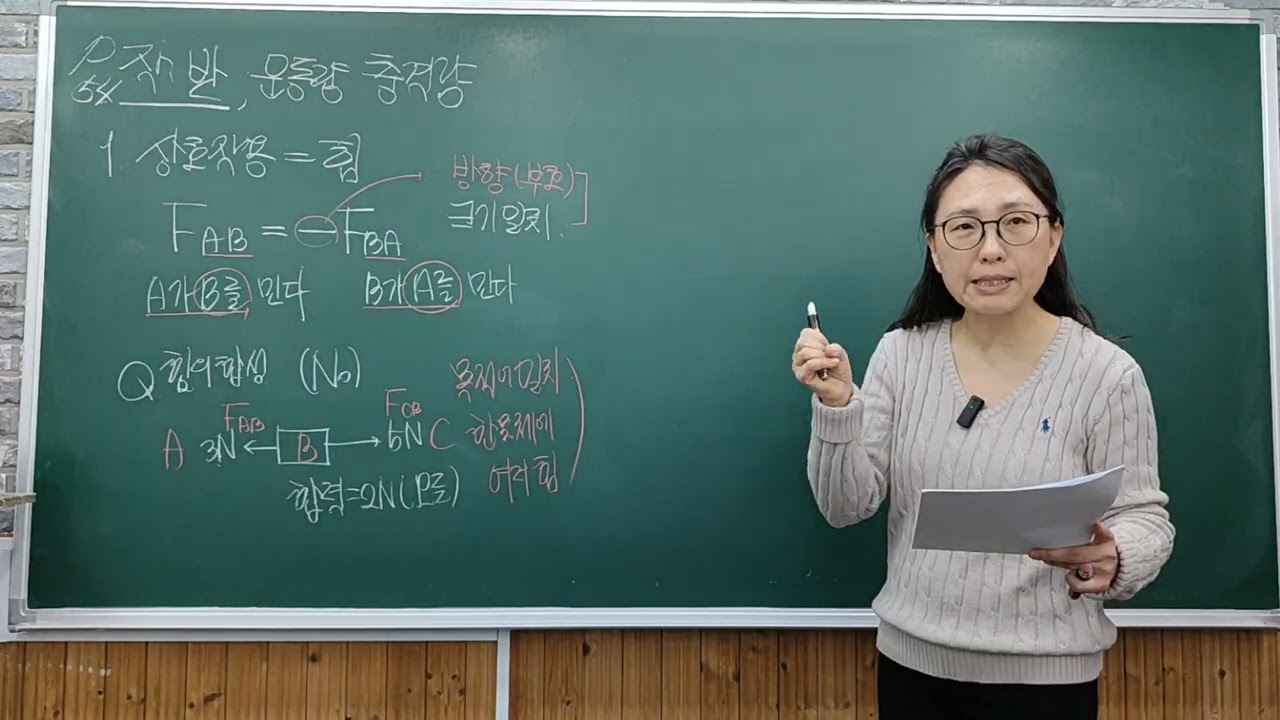 P54 작·반, 운동량 충격량
1. 상호작용 = 힘
방향(부호)
F AB = - F BA
크기 일치.
A가 B를 민다 B가 A를 민다
Q 힘의 합성 (No)
목적어 일치
F AB F CB
A 3N B 5N C
한 물체에
여러 힘
합력=2N(으로)